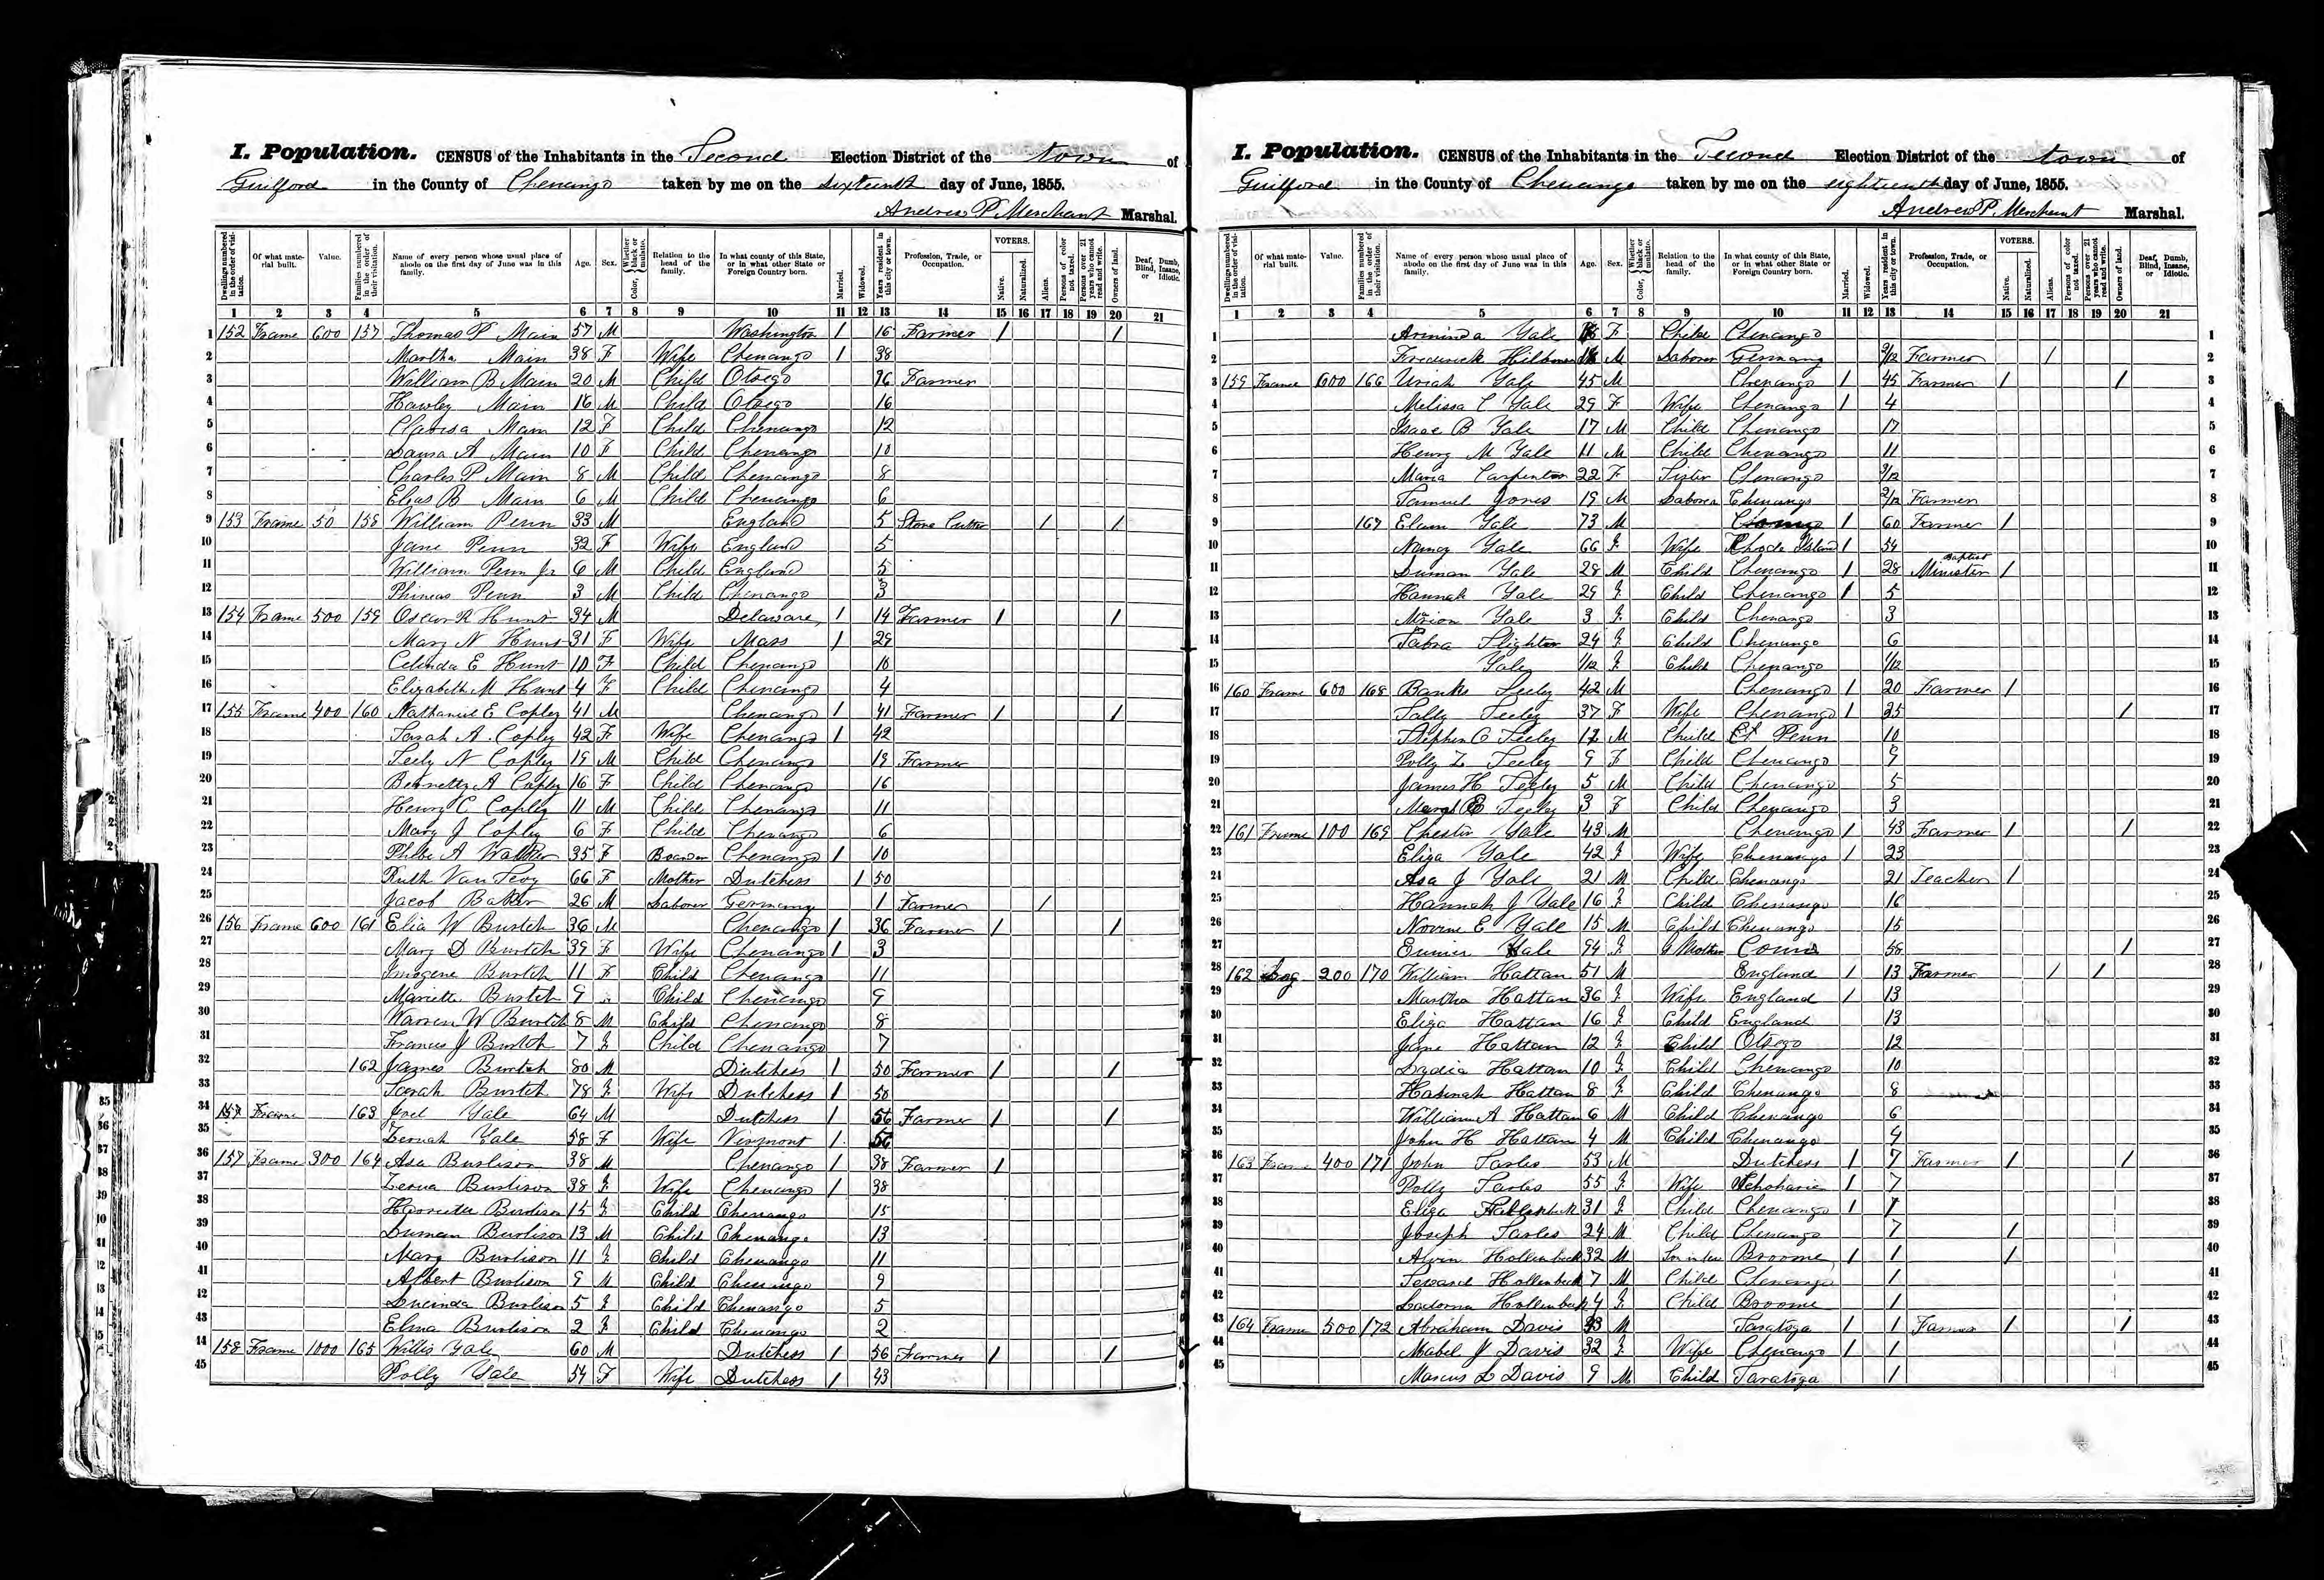 I. Population. CENSUS of the Inhabitants in the Second Election District of the town of
Guilford in the County of Chenango taken by me on the sixteenth day of June, 1855.
Andrew P. Merchant Marshal.
Dwellings numbered in the order of visitation. Of what material built. Value. Families numbered in the order of their visitation. Name of every person whose usual place of abode on the first day of June was in this family. Age. Sex. Color, Whether black or mulatto. Relation to the head of the family. In what county of this State, or in what other State or Foreign Country born. Married. Widowed. Years resident in this city or town. Profession, Trade, or Occupation. VOTERS. Native. Naturalized. Aliens. Persons of color not taxed. Persons over 21 years who cannot read and write. Owners of land. Deaf, Dumb, Blind, Insane, or Idiotic.
1 2 3 4 5 6 7 8 9 10 11 12 13 14 15 16 17 18 19 20 21
1 152 Frame 600 157 Thomas P Main 57 M Washington 1 16 Farmer 1 1
2 Martha Main 38 F Wife Chenango 1 38
3 William B Main 20 M Child Otsego 16 Farmer
4 Hawley Main 16 M Child Otsego 16
5 Main 12 F Child Chenango 12
6 Laura A Main 10 F Child Chenango 10
7 Charles P Main 8 M Child Chenango 8
8 Elias B Main 6 M Child Chenango 6
9 153 Frame 50 158 William Penn 33 M England 5 Stone Cutter 1 1
10 Jane Penn 32 F Wife England 5
11 William Penn Jr 6 M Child England 5
12 Phineas Penn 3 M Child Chenango 3
13 154 Frame 500 159 Oscar R Hunt 34 M Delaware 1 14 Farmer 1 1
14 Mary N Hunt 31 F Wife Mass 1 29
15 Celinda E Hunt 10 F Child Chenango 10
16 Elizabeth M Hunt 4 F Child Chenango 4
17 155 Frame 400 160 Nathaniel E Copley 41 M Chenango 1 41 Farmer 1 1
18 Sarah A. Copley 42 F Wife Chenango 1 42
19 Seely N Copley 19 M Child Chenango 19 Farmer
20 A Copley 16 F Child Chenango 16
21 Henry C Copley 11 M Child Chenango 11
22 Mary J Copley 6 F Child Chenango 6
23 Phebe A 35 F Boarder Chenango 1 10
24 Ruth Van 66 F Mother Dutchess 1 50
25 Jacob 26 M Laborer Germany 1 Farmer 1
26 156 Frame 600 161 Elia W Burtch 36 M Chenango 1 36 Farmer 1 1
27 Mary D Burtch 39 F Wife Chenango 1 3
28 Imogene Burtch 11 F Child Chenango 11
29 Mariette Burtch 9 " Child Chenango 9
30 Warren W Burtch 8 M Child Chenango 8
31 Frances J Burtch 7 F Child Chenango 7
32 162 James Burtch 80 M Dutchess 1 50 Farmer 1 1
33 Sarah Burtch 78 F Wife Dutchess 1 50
34 157 Frame 163 Joel Yale 64 M Dutchess 1 56 Farmer 1 1
35 Zeruah Yale 58 F Wife Vermont 1 56
36 157 Frame 300 164 Asa Burlison 38 M Chenango 1 38 Farmer 1
37 Zerua Burlison 38 F Wife Chenango 1 38
38 Burlison 15 F Child Chenango 15
39 Duman Burlison 13 M Child Chenango 13
40 Mary Burlison 11 F Child Chenango 11
41 Albert Burlison 9 M Child Chenango 9
42 Lucinda Burlison 5 F Child Chenango 5
43 Elma Burlison 2 F Child Chenango 2
44 158 Frame 1000 165 Willis Yale 60 M Dutchess 1 56 Farmer 1 1
45 Polly Yale 54 F Wife Dutchess 1 43
I. Population. CENSUS of the Inhabitants in the Second Election District of the town of
Guilford in the County of Chenango taken by me on the eighteenth day of June, 1855.
Andrew P. Merchant Marshal.
Dwellings numbered in the order of visitation. Of what material built. Value. Families numbered in the order of their visitation. Name of every person whose usual place of abode on the first day of June was in this family. Age. Sex. Color, Whether black or mulatto. Relation to the head of the family. In what county of this State, or in what other State or Foreign Country born. Married. Widowed. Years resident in this city or town. Profession, Trade, or Occupation. VOTERS. Native. Naturalized. Aliens. Persons of color not taxed. Persons over 21 years who cannot read and write. Owners of land. Deaf, Dumb, Blind, Insane, or Idiotic.
1 2 3 4 5 6 7 8 9 10 11 12 13 14 15 16 17 18 19 20 21
1 Arminda Yale F Child Chenango 1
2 Frederick M Laborer Germany 9/12 Farmer 1 2
3 159 Frame 600 166 Uriah Yale 45 M Chenango 1 45 Farmer 1 1 3
4 Melissa C Yale 29 F Wife Chenango 1 4 4
5 Isaac B Yale 17 M Child Chenango 17 5
6 Henry M Yale 11 M Child Chenango 11 6
7 Maria Carpenter 22 F Sister Chenango 7
8 Samuel Jones 19 M Laborer Chenango Farmer 8
9 167 Elum Yale 73 M 1 60 Farmer 1 9
10 Nancy Yale 66 F Wife Rhode Island 1 54 10
11 Duman Yale 28 M Child Chenango 1 28 Baptist Minister 1 11
12 Hannah Yale 29 F Child Chenango 1 5 12
13 Yale 3 F Child Chenango 3 13
14 24 F Child Chenango 6 14
15 Yale 1/12 F Child Chenango 1/12 15
16 160 Frame 600 168 Banks Seeley 42 M Chenango 1 20 Farmer 1 16
17 Sally Seeley 37 F Wife Chenango 1 25 1 17
18 Stephen C Seeley 12 M Child Penn 10 18
19 Polly L Seeley 9 F Child Chenango 9 19
20 James H Seeley 5 M Child Chenango 5 20
21 E Seeley 3 F Child Chenango 3 21
22 161 Frame 100 169 Chester Yale 43 M Chenango 1 43 Farmer 1 1 22
23 Eliza Yale 42 F Wife Chenango 1 23 23
24 Asa J Yale 21 M Child Chenango 21 Teacher 1 24
25 Hannah J Yale 16 F Child Chenango 16 25
26 E Yale 15 M Child Chenango 15 26
27 Eunice Yale 94 F G Mother Conn 58 1 27
28 162 Log 200 170 William Hattan 51 M England 1 13 Farmer 1 1 28
29 Martha Hattan 36 F Wife England 1 13 29
30 Eliza Hattan 16 F Child England 13 30
31 Jane Hattan 12 F Child Otsego 12 31
32 Lydia Hattan 10 F Child Chenango 10 32
33 Hannah Hattan 8 F Child Chenango 8 33
34 William A Hattan 6 M Child Chenango 6 34
35 John H Hattan 4 M Child Chenango 4 35
36 163 Frame 400 171 John Sarles 53 M Dutchess 1 7 Farmer 1 1 36
37 Polly Sarles 55 F Wife Schoharie 1 7 37
38 Eliza 31 F Child Chenango 1 1 38
39 Joseph Sarles 24 M Child Chenango 7 1 39
40 Alvin Hollenbeck 32 M Son in law Broome 1 1 1 40
41 Hollenbeck 7 M Child Chenango 1 41
42 Hollenbeck 4 F Child Broome 1 42
43 164 Frame 500 172 Abraham Davis M Saratoga 1 1 Farmer 1 1 43
44 Mabel J Davis 32 F Wife Chenango 1 1 44
45 Marcus L Davis 9 M Child Saratoga 1 45